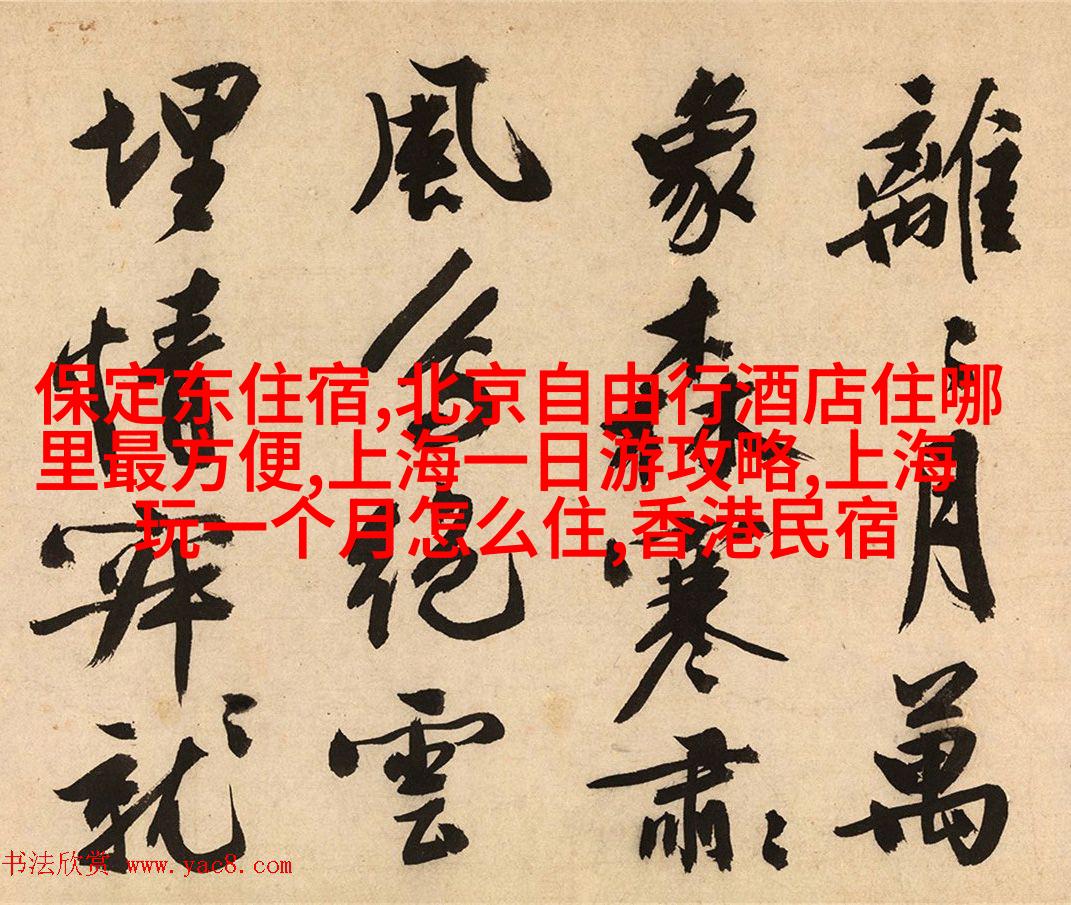 離〻月萬
象森寒肅〻
風絕雲
埋情穽就〻
保定东住宿,北京自由行酒店住哪
里最方便,上海一日游攻略,上海
玩一个月怎么住,香港民宿
书法欣赏 www.yac8.com